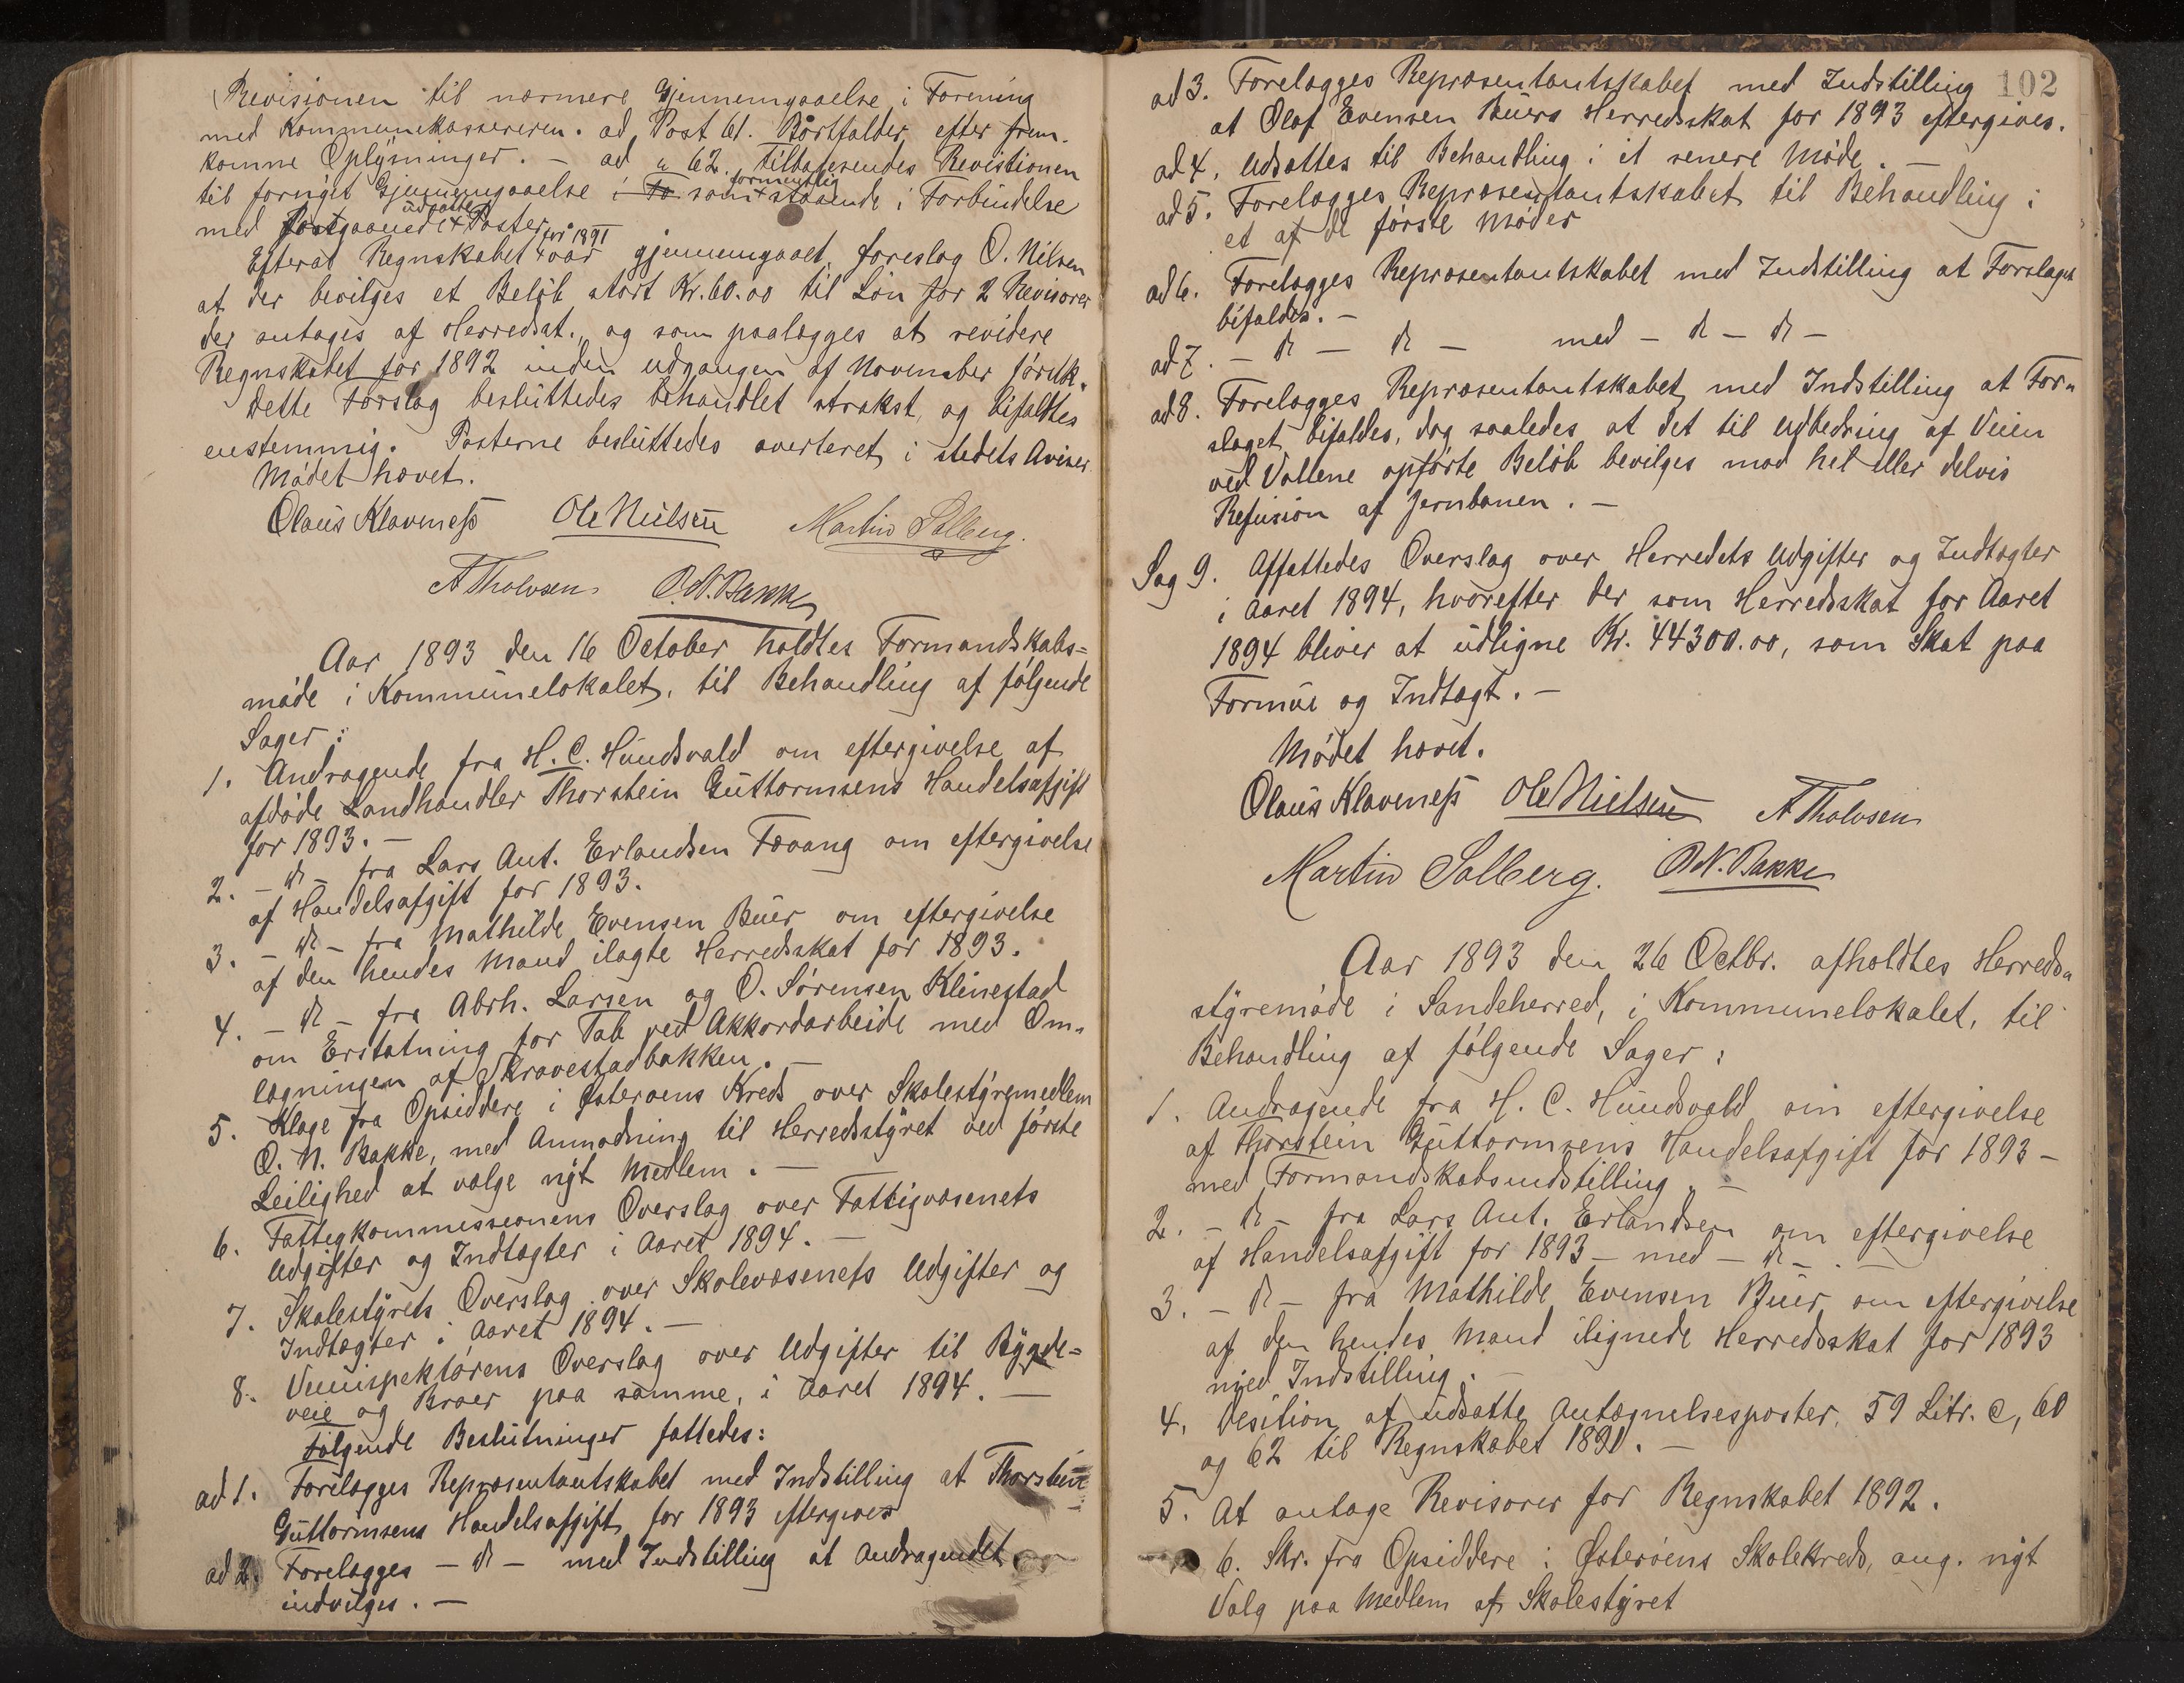 Revisionen til nærmere Gjennemgaaelse i Forening
med Kommunekassereren. ad Post 61. Bortfalder efter frem-
komne Oplysninger. – ad " 62. tilbagesendes Revisionen
til fornyet Gjennemgaaelse i Fo som formentlig staaende i Forbindelse
med foregaaende udsatte Poster.
Efterat Regnskabet for 1891 var gjennemgaaet, foreslog O. Nilsen
at der bevilges et Beløb stort Kr. 60.00 til Løn for 2 Revisorer
der antages af Herredsst., og som paalægges at revidere
Regnskabet for 1892 inden udgangen af November førstk.
Dette Forslag besluttedes behandlet strakst, og bifaldtes
enstemmig. Posterne besluttedes averteret i stedets Aviser.
Mødet hævet.
Olaus Klaveness Ole Nielsen Martin Solberg.
A Tholvsen O. N. Bakke
Aar 1893 den 16 October holdtes Formandskabs=
møde i Kommunelokalet, til Behandling af følgende
Sager:
1. Andragende fra H. C. Hundsvald om eftergivelse af
afdøde Landhandler Thorstein Guttormsens Handelsafgift
for 1893. –
2. – dt – fra Lars Ant. Erlandsen Fevang om eftergivelse
af Handelsafgift for 1893.
3. – dt – fra Mathilde Evensen Buer om eftergivelse
af den hendes Mand ilagte Herredsskat for 1893.
4. – dt – fra Abrh. Larsen og O. Sørensen Klinestad
om Erstatning for Tab ved Akkordarbeide med Om-
lægningen af Skravestadbakken. –
5. Klage fra Opsiddere i Østerøens Kreds over Skolestyremedlem
O. N. Bakke, med Anmodning til Herredsstyret ved første
Leilighed at vælge nyt Medlem. –
6. Fattigkommissionens Overslag over Fattigvæsenets
Udgifter og Indtægter i Aaret 1894. –
7. Skolestyrets Overslag over Skolevæsenets Udgifter og
Indtægter i Aaret 1894. –
8. Veiinspektørens Overslag over Udgifter til Bygde=
veie og Broer paa samme, i Aaret 1894. –
Følgende Beslutninger fattedes:
ad 1. Forelægges Repræsentantskabet med Indstilling at Thorstein
Guttormsens Handelsafgift for 1893 eftergives
ad 2. Forelægges – dt – med Indstilling at Andragendet
indvilges. –
102
ad 3. Forelægges Repræsentantskabet med Indstilling
at Olaf Evensen Buers Herredsskat for 1893 eftergives.
ad 4. Udsættes til Behandling i et senere Møde. –
ad 5. Forelægges Repræsentantskabet til Behandling i
et af de første Møder
ad 6. Forelægges Repræsentantskabet med Indstilling at Forslaget
bifaldes. –
ad 7. – dt – dt – med – dt – dt –
ad 8. Forelægges Repræsentantskabet med Indstilling at For-
slaget bifaldes, dog saaledes at det til Udbedring af Veien
ved Vallene opførte Beløb bevilges mod hel eller delvis
Refusion af Jernbanen. –
Sag 9. Affattedes Overslag over Herredets Udgifter og Indtægter
i Aaret 1894, hvorefter der som Herredsskat for Aaret
1894 bliver at udligne Kr. 44300.00, som Skat paa
Formue og Indtægt. –
Mødet hævet.
Olaus Klaveness Ole Nielsen A Tholvsen
Martin Solberg. O. N. Bakke
Aar 1893 den 26 Octbr. afholdtes Herreds-
styremøde i Sandeherred, i Kommunelokalet, til
Behandling af følgende Sager:
1. Andragende fra H. C. Hundsvald om eftergivelse
af Thorstein Guttormsens Handelsafgift for 1893 –
med Formandskabsindstilling. –
2. – dt – fra Lars Ant. Erlandsen om eftergivelse
af Handelsafgift for 1893 – med – dt – . –
3. – dt – fra Mathilde Evensen Buer om eftergivelse
af den hendes Mand ilignede Herredsskat for 1893
med Indstilling. –
4. Desition af udsatte Antægnelsesposter, 59 Litr. c, 60
og 62 til Regnskabet 1891. –
5. At antage Revisorer for Regnskabet 1892.
6. Skr. fra Opsiddere i Østerøens Skolekreds, ang. nyt
Valg paa Medlem af Skolestyret